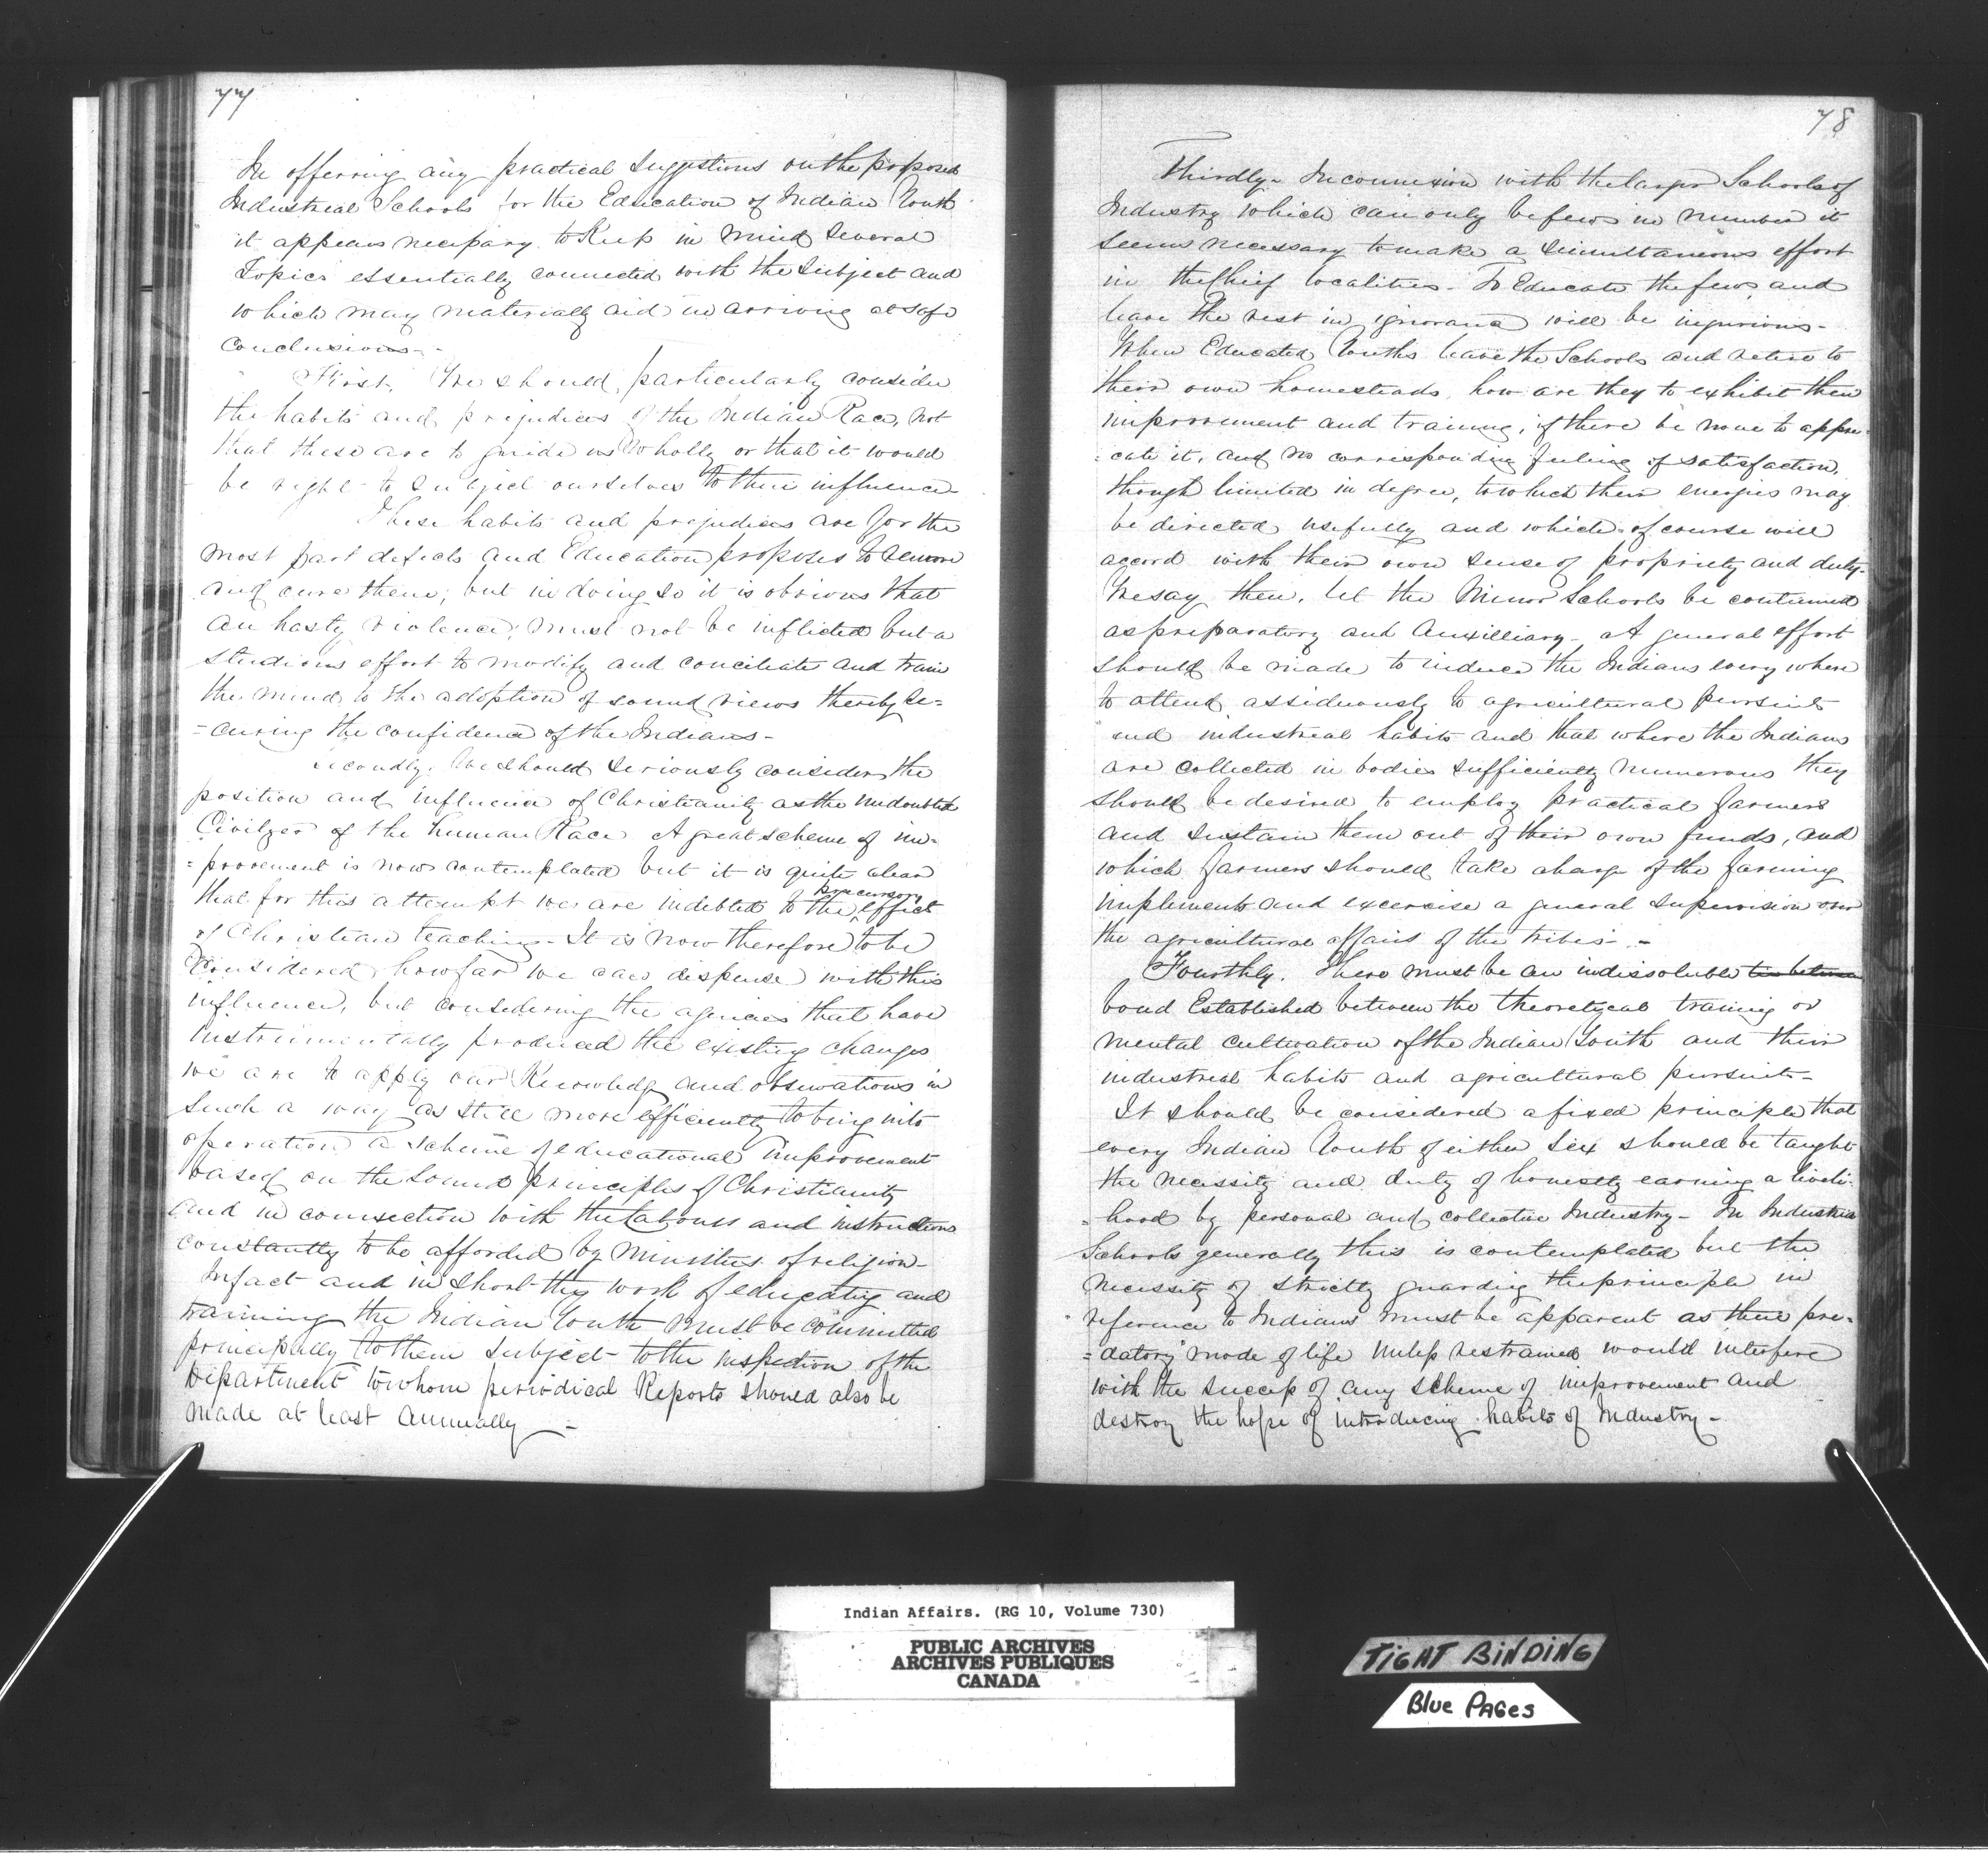 77
In offering any practical Suggestions on the proposed
Industrial Schools for the Education of Indian Youth
it appears necessary to Keep in mind Several
Topics essentially connected with the Subject and
which may materially aid in arriving at safe
Conclusions -
First. We should particularly consider
the habits and prejudices of the Indian Race, not
that these are to guide us Wholly or that it would
be right to Subject ourselves to their influence -
These habits and prejudices are for the
most part defects and Education proposes to remove
and cure them; but in doing so it is obvious that
an hasty violence, must not be inflicted but a
studious effort to modify and conciliate and train
the mind to the adoption of sound views thereby se=
=curing the confidence of the Indians -
Secondly. We should Seriously consider the
position and influence of Christianity as the Undoubted
Civilzer of the human Race A great scheme of im=
=provement is now contemplated but it is quite clear
precursory
that for this attempt we are indebted to the effect
of Christian teaching - It is now therefore to be
Considered how far we can dispense with this
influence, but considering the agencies that have
instrumentally produced the existing changes
we are to apply our Knowledge and observations in
Such a way as still more efficiently to bring into
operation a scheme of educational improvement
based on the Sound principles of Christianity
and in connection with the Labours and instructions
constantly to be afforded by Ministers of religion -
In fact and in short the work of educating and
training the Indian Youth must be committed
principally to them subject to the inspection of the
Department to whom periodical Reports should also be
made at least Annually -
78
Thirdly - In connexion with the larger Schools of
Industry which can only be few in number it
seems necessary to make a Simultaneous effort
in the Chief localities - To Educate the few and
leave the rest in ignorance will be injurious -
When Educated Youths leave the Schools and retire to
their own homesteads, how are they to exhibit their
improvement and training, if there be none to appre=
=cate it, and no corresponding feeling of satisfaction,
though limited in degree, to which their energies may
be directed usefully and which of course will
accord with their own sense of propriety and duty -
We say then, let the Minor Schools be continued
as preparatory and Auxilliary - A general effort
should be made to induce the Indians every where
to attend assiduously to agricultural pursuits
and industrial habits and that where the Indians
are collected in bodies sufficiently numerous they
should be desired to employ practical farmers
and Sustain them out of their own funds, and
which farmers should take charge of the farming
implements and excercise a general Supervision over
the agricultural affairs of the tribes -
Fourthly. There must be an indissoluble tie between
bond Established between the theoretycal training or
mental cultivation of the Indian Youth and their
industrial habits and agricultural pursuits -
It should be considered a fixed principle that
every Indian Youth of either Sex should be taught
the necessity and duty of honestly earning a liveli=
=hood by personal and collective Industry - In Industrial
Schools generally this is contemplated but the
necessity of strictly guarding the principle in
reference to Indians must be apparent as their pre=
=datory mode of life unless restrained would interfere
with the success of any scheme of improvement and
destroy the hope of introducing habits of Industry -
Indian Affairs. (RG 10, Volume 730)
PUBLIC ARCHIVES
ARCHIVES PUBLIQUES
CANADA
TIGHT BINDING
Blue PAGes